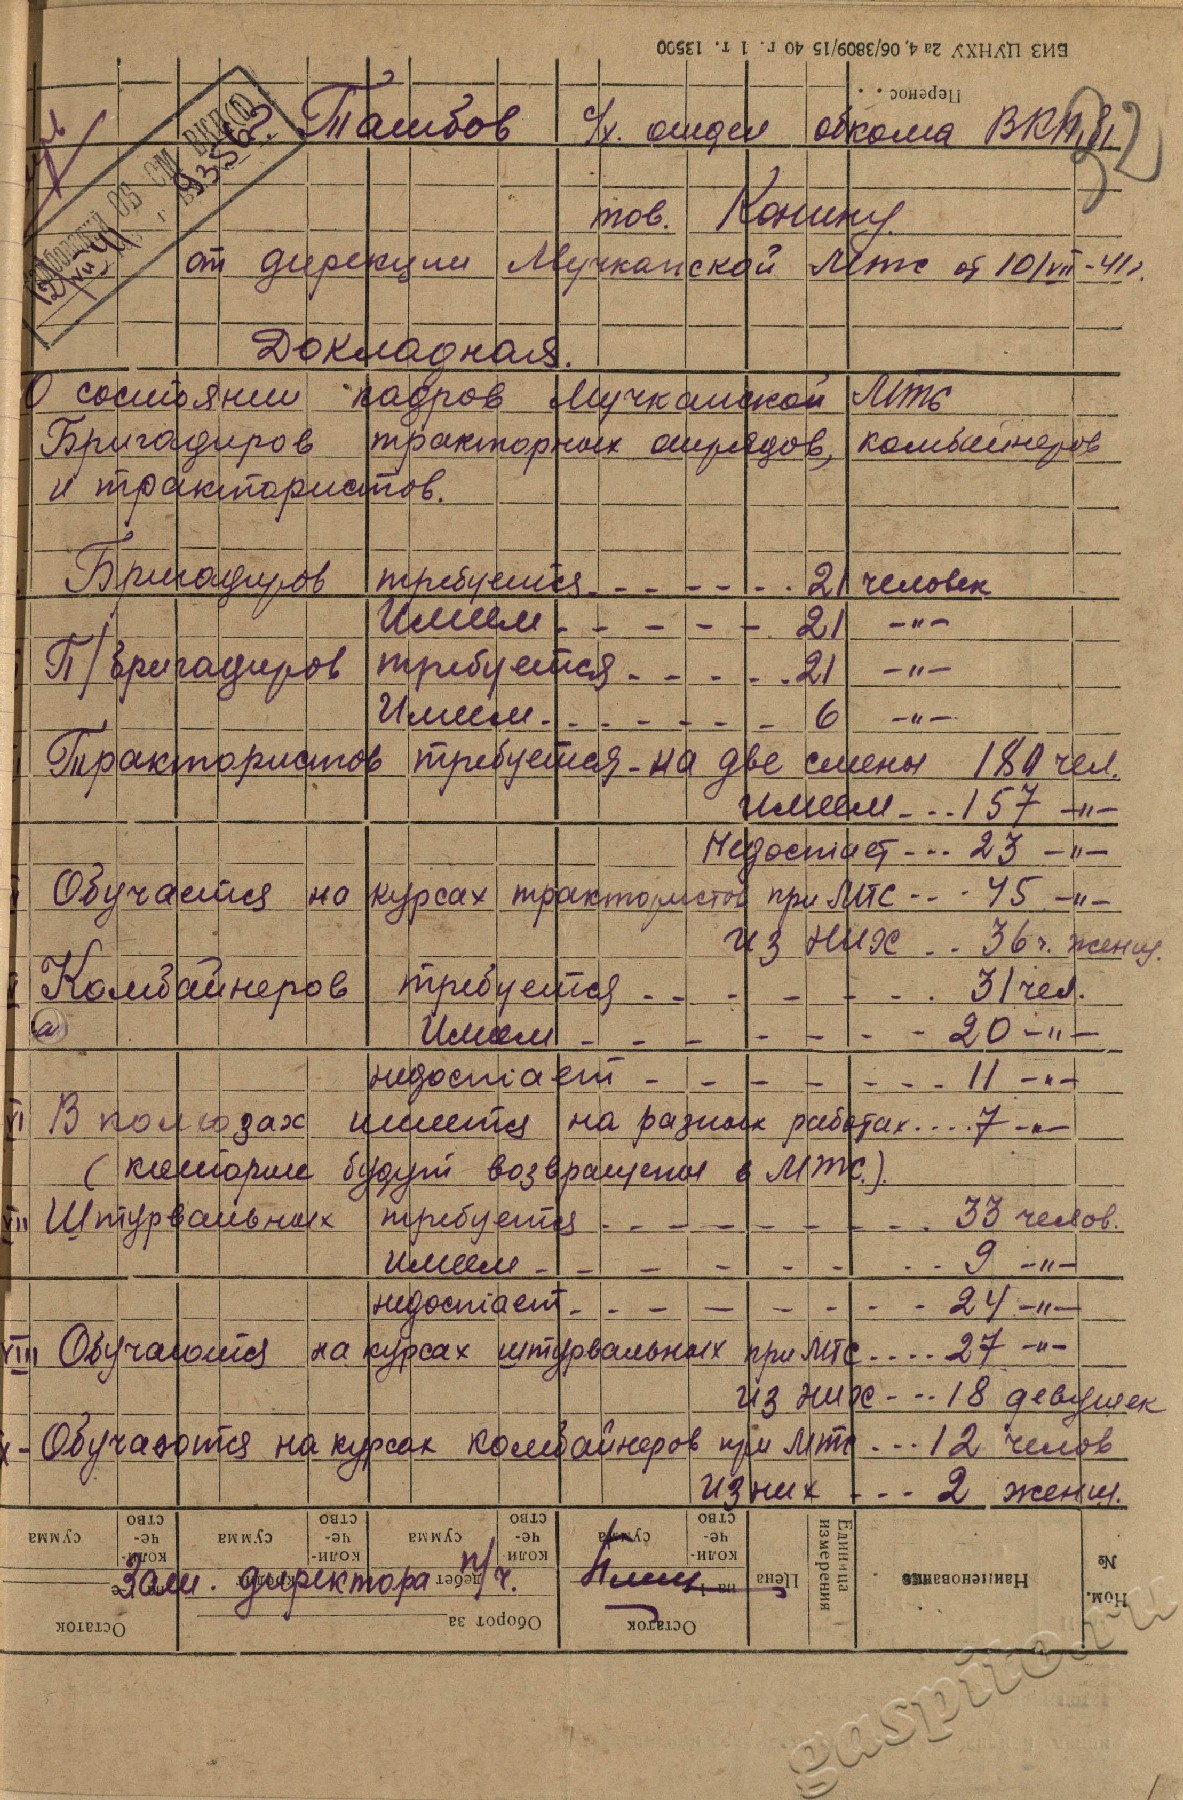 БИЗ ЦУНХУ 2а 4, 06/3809/15 40 г. 1 т. 13500
Перенос . .
32
Тамбов с/х. отдел обкома ВКП/б/.
9356
тов. Конину.
от дирекции Мучкапской МТС от 10/VII-41г.
Докладная.
О состоянии кадров Мучкапской МТС
Бригадиров тракторных отрядов, комбайнеров
и трактористов.
Бригадиров требуется - - - - - - 21 человек
Имеем - - - - - 21 -"-
П/бригадиров требуется - - - - - 21 -"-
Имеем - - - - - - - 6 -"-
Трактористов требуется - на две смены 180 чел.
имеем - - - 157 -"-
Недостает - - - 23 -"-
Обучается на курсах трактористов при МТС - - - 45 -"-
из них - - 36 ч. женщ.
V Комбайнеров требуется - - - - - - - 31 чел.
а Имеем - - - - - - - - 20 -"-
недостает - - - - - - - - 11 -"-
VI В колхозах имеется на разных работах . . . . 7 -"-
( которые будут возвращены в МТС.).
VII Штурвальных требуется - - - - - - - - 33 челов.
имеем - - - - - - - - - 9 -"-
недостает - - - - - - - - - 24 -"-
VIII Обучаются на курсах штурвальных при МТС . . . . 27 -"-
из них - - - 18 девушек
IX - Обучаются на курсах комбайнеров при МТС - - - 12 челов
из них - - - 2 женщ.
Зам. директора п/ч.
Ном. №
Наименование
Единица измерения
Цена
Остаток на 1
коли-че-ство
сумма
Оборот за
дебет
коли-че-ство
сумма
кредит
коли-че-ство
сумма
Остаток
на
коли-че-ство
сумма
gaspito.ru